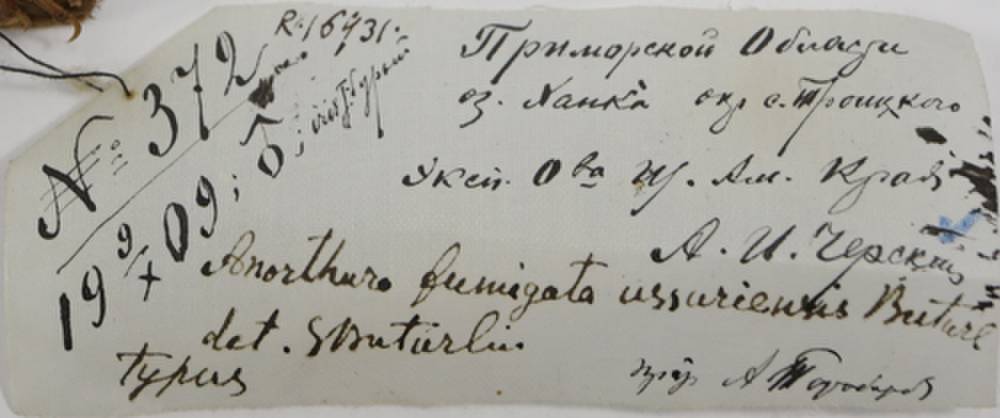 R.16431.
№ 372
19 9/X 09;
Приморской Области
оз. Ханка окр с. Троицкого
Эксп. Ова Из. Ам. Края
А. И. Черский
Anorthura fumigata ussuriensis Buturl
det. SButurlin
typus